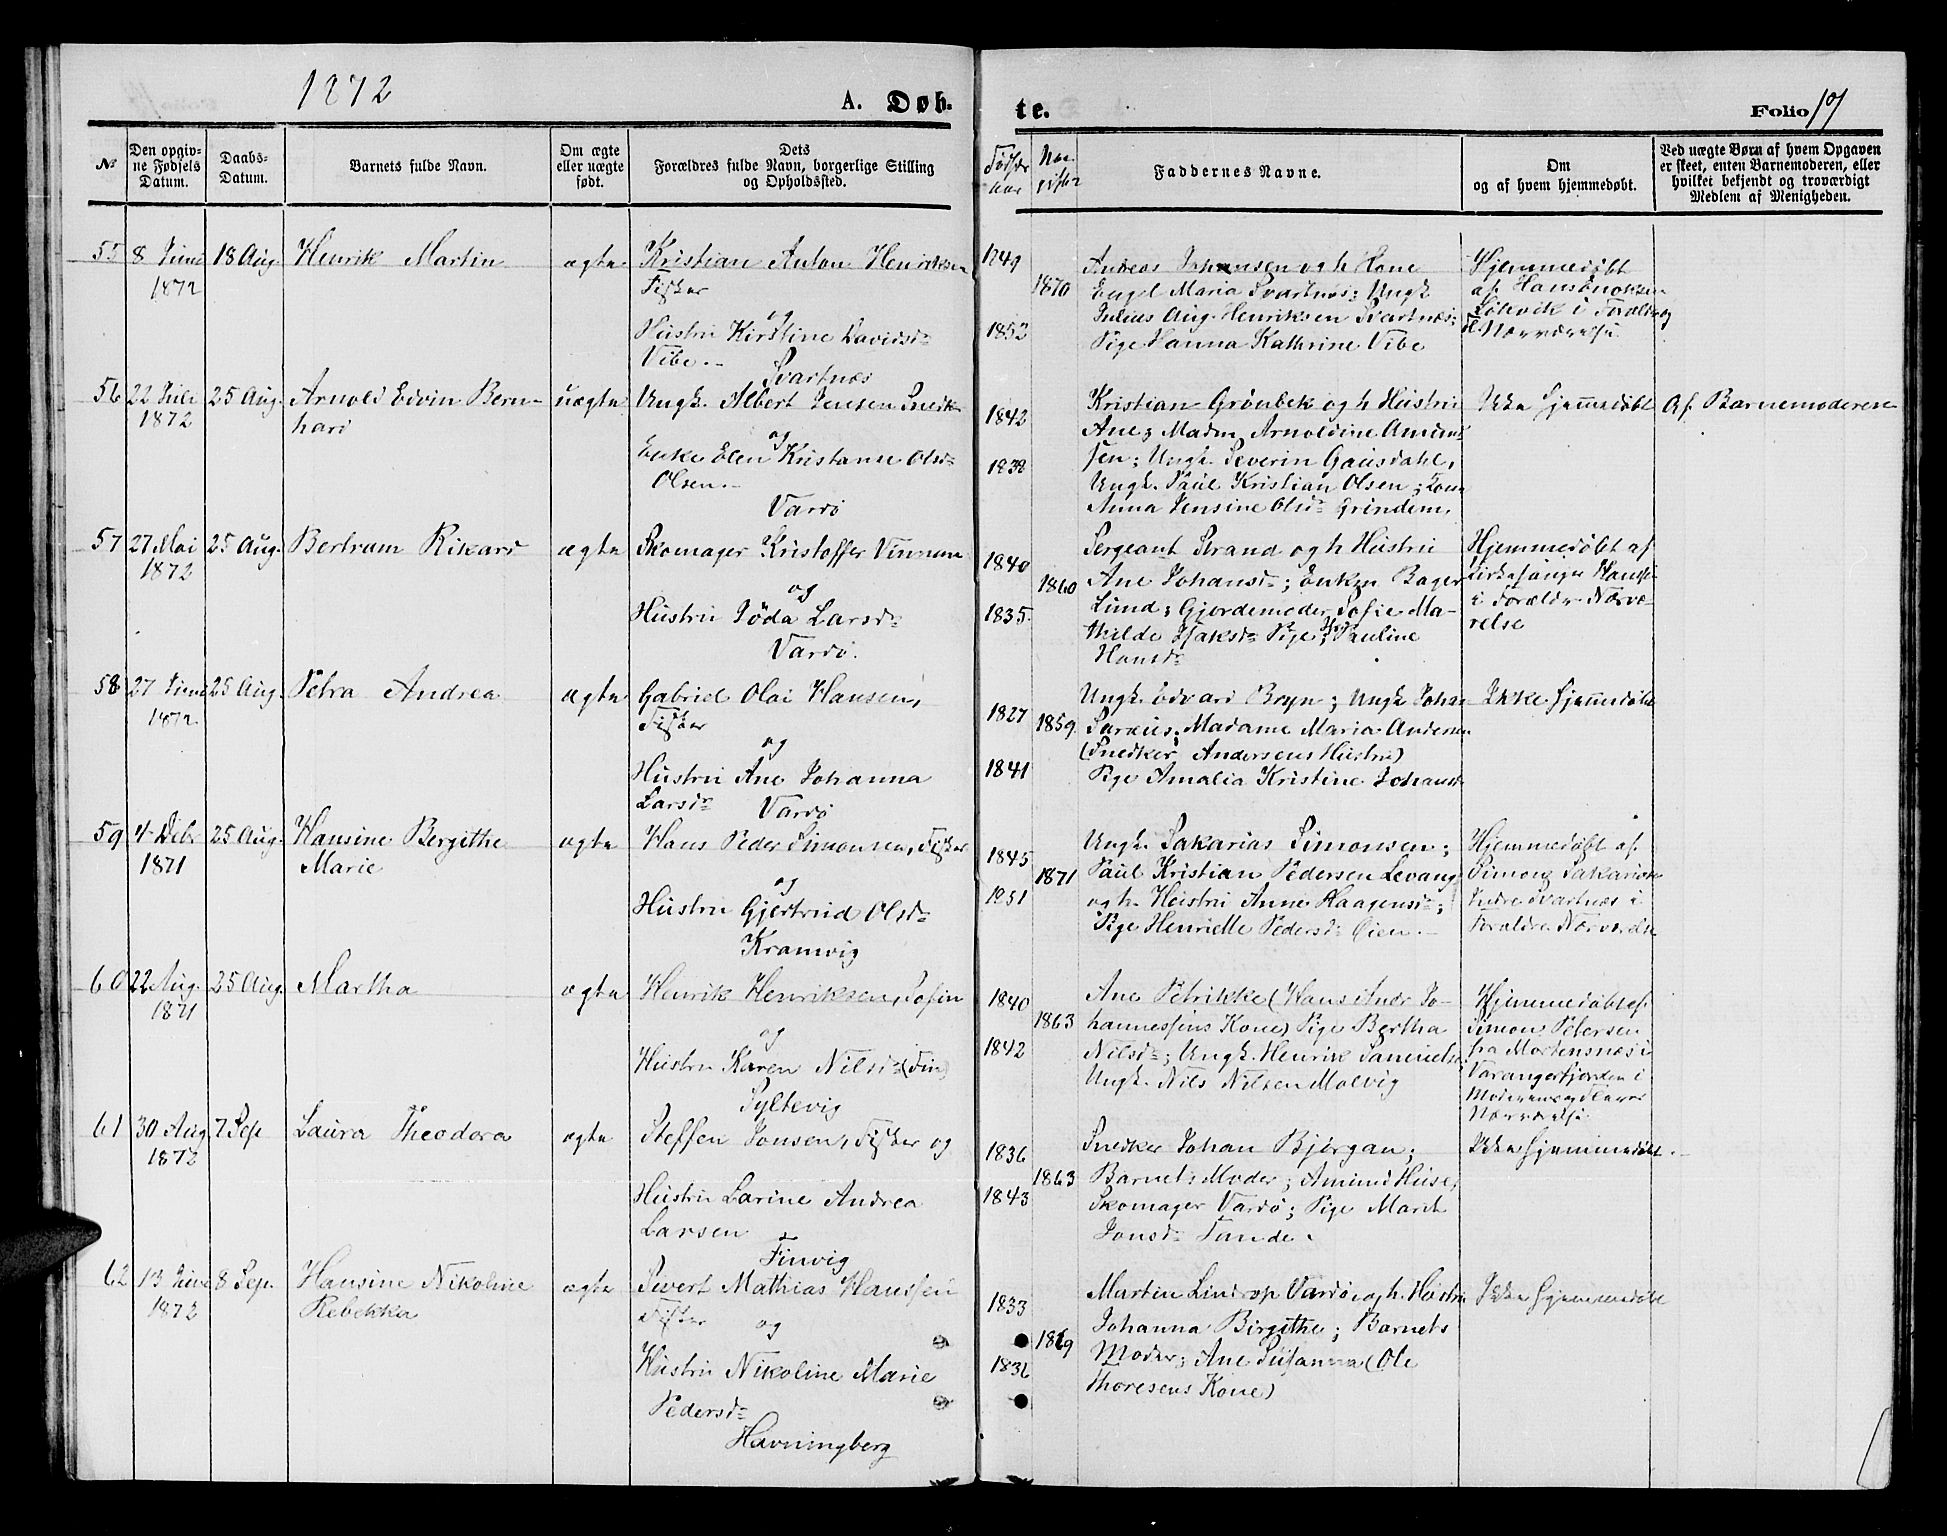 1872
A. Døb-
te.
Folio 19
№
Den opgiv-
ne Fødsels
Datum.
Daabs-
Datum.
Barnets fulde Navn.
Om ægte
eller uægte
født.
Dets
Forældres fulde Navn, borgerlige Stilling
og Opholdssted.
Fødsels
aar
Faddernes Navne.
Om
og af hvem hjemmedøbt.
Ved uægte Børn af hvem Opgaven
er skeet, enten Barnemoderen, eller
hvilket bekjendt og troværdigt
Medlem af Menigheden.
55
8 Juni
1872
18 Aug.
Henrik Martin
ægte
Kristian Anton Henriksen
Fisker
og
Hustru Kirstine Davidsdr
Vibe.
Svartnæs
1849
1870
1852
Andreas Johansen og h Kone
Engel Maria Svartnæs; Ungk
Julius Aug. Henriksen Svartnæs;
Pige Hanna Kathrine Vibe
Hjemmedøbt
af Hans Enoksen
Kibevik i Forældr
Nærværelse
56
22 Juli
1872
25 Aug.
Arnold Edvin Bern-
hard
uægte
Ungk. Albert Jensen Snedk
og
Enke Elen Kristanne Olsdr
Olsen.
Vardø
1842
1838
Kristian Grönbek og h Hustru
Ane; Madm Arnoldine Amund
sen; Ungk. Severin Gausdahl,
Ungk. Paul Kristian Olsen; Kone
Anna Jensine Olsdr Grindem.
Ikke hjemmedøbt
Af Barnemoderen
57
27 Mai
1872
25 Aug.
Bertram Rikard
ægte
Skomager Kristoffer Vinnum
og
Hustru Jöda Larsdr
Vardø.
1840
1860
1835.
Sergeant Strand og h Hustru
Ane Johansdr; Enken Bager
Lund; Gjordemoder Sofie Ma-
thilde Isaksdr Pige Pauline
Hansdr
Hjemmedøbt af
Kirkesanger Hansen
i Forældr Nærvæ-
relse
58
27 Juni
1872
25 Aug.
Petra Andrea
ægte
Gabriel Olai Hansen,
Fisker
og
Hustru Ane Johanna
Larsdr
Vardø
1827
1859.
1841
Ungk. Edvard Bryn; Ungk Johan
Saræus; Madame Maria Andersen
(Snedker Andersens Hustru)
Pige Amalia Kristine Johansdr
Ikke hjemmedøbt
59
4 Debr
1871
25 Aug.
Hansine Bergithe
Marie
ægte
Hans Peder Simonsen, Fisker
og
Hustru Gjertrud Olsdr
Kramvig
1845
1871
1851
Ungk. Sakarias Simonsen;
Paul Kristian Pedersen Levang
og h. Hustru Anne Haagensdr;
Pige Henriette Pedersdr Öien.
Hjemmedøbt af
Simon Sakarias
Indre Svartnæs i
Forældre Nærværelse
60
22 Aug.
1871
25 Aug.
Martha
ægte
Henrik Henriksen, Sofin
og
Hustru Karen Nilsdr (Fin)
Syltevig
1840
1863
1842
Ane Petrikke (Hans Andr Jo-
hannessens Kone) Pige Bertha
Nilsdr; Ungk. Henrik Samuelse
Ungk. Nils Nilsen Molvig
Hjemmedøbt af
Simon Petersen
fra Mortensnæs i
Varangerfjorden i
Moderens og Fleres
Nærværelse
61
30 Aug.
1872
7 Sep
Laura Theodora
ægte
Steffen Jonsen, Fisker og
Hustru Larine Andrea
Larsen
Finvig
1836
1863
1843
Snedker Johan Björgan;
Barnets Moder; Amund Huse,
Skomager Vardø; Pige Marit
Jonsdr Tande.
Ikke hjemmedøbt.
62
13 Juni
1872
8 Sep.
Hansine Nikoline
Rebekka
ægte
Sivert Mathias Hanssen
Fisker og
Hustru Nikoline Marie
Pedersdr
Havningberg
1833
1869
1836
Martin Lindrop Vardø, og h. Hustru
Johanna Birgithe; Barnets
Moder; Ane Susanna (Ole
Thoresens Kone)
Ikke hjemmedøbt